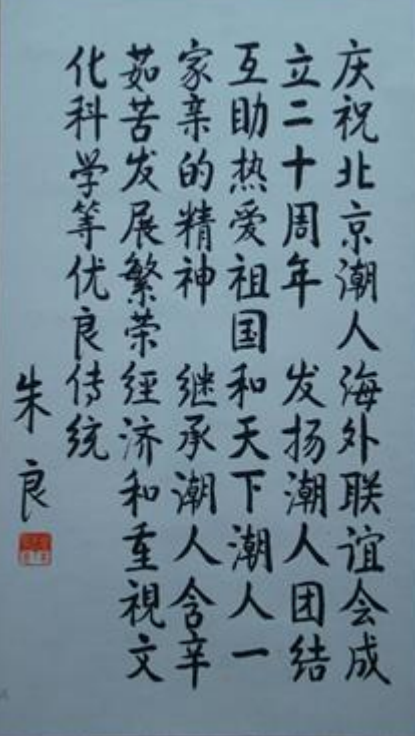 庆祝北京潮人海外联谊会成
立二十周年 发扬潮人团结
互助热爱祖国和天下潮人一
家亲的精神 继承潮人含辛
茹苦发展繁荣经济和重視文
化科学等优良传统
朱良